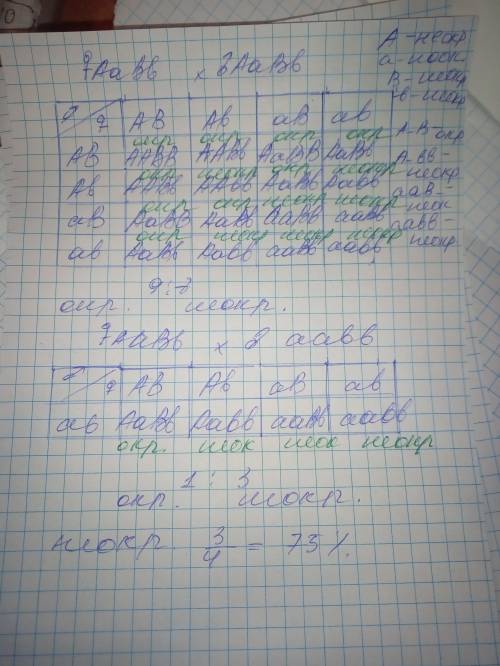 ♀AaBb x ♂AaBb
A - неокр
a - неок
B - неокр
b - неокр
♂ ♀ AB Ab aB ab
AB AABB AABb AaBB AaBb
окр окр окр окр
Ab AABb AAbb AaBb Aabb
окр неокр окр неокр
aB AaBB AaBb aaBB aaBb
окр окр неокр неокр
ab AaBb Aabb aaBb aabb
окр неокр неокр неокр
A-B- окр
A-bb -
неокр
aaB-
неок
aabb -
неокр
9:7
окр. неокр.
♀AaBb x ♂ aabb
♂ ♀ AB Ab aB ab
ab AaBb Aabb aaBb aabb
окр. неок неок неокр
1 : 3
окр. неокр.
неокр 3/4 = 75%